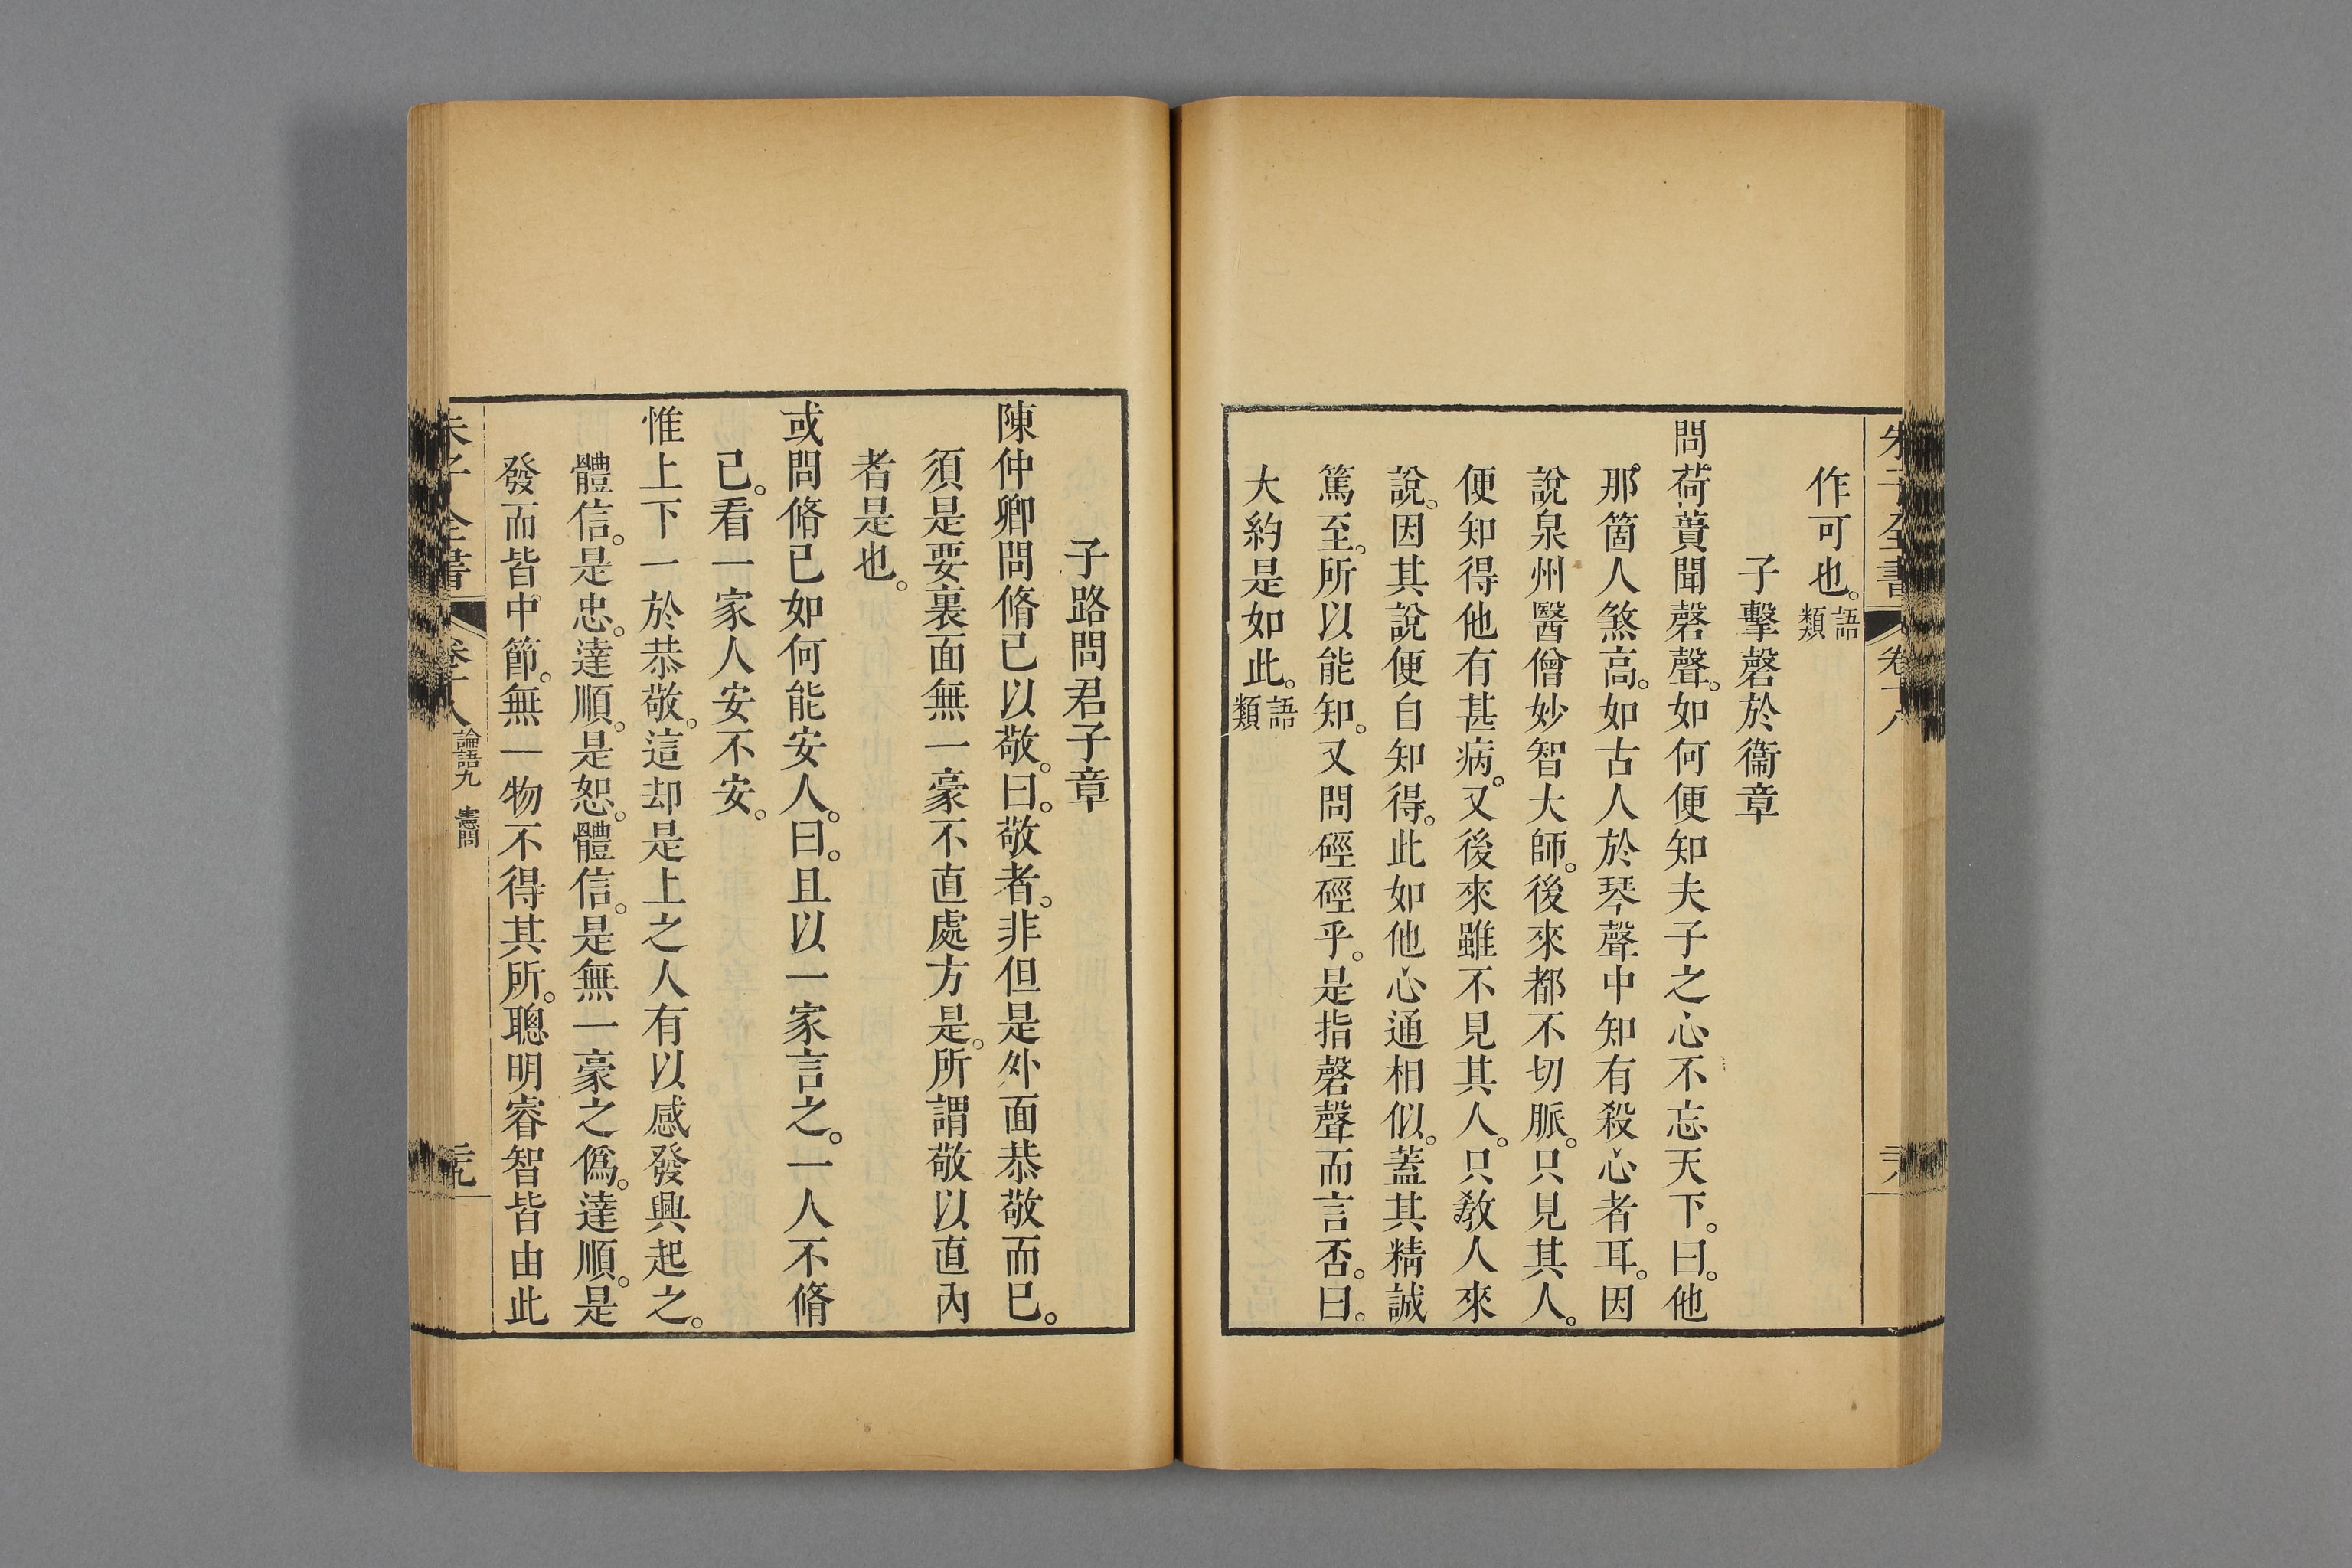 作可也。語類
子擊磬於衞章
問荷蕢聞磬聲。如何便知夫子之心不忘天下。曰。他
那箇人煞高。如古人於琴聲中知有殺心者耳。因
說泉州醫僧妙智大師。後來都不切脈。只見其人。
便知得他有甚病。又後來雖不見其人。只教人來
說。因其說便自知得。此如他心通相似。蓋其精誠
篤至。所以能知。又問硜硜乎。是指磬聲而言否。曰。
大約是如此。語類
子路問君子章
陳仲卿問脩己以敬。曰。敬者。非但是外面恭敬而已。
須是要裏面無一豪不直處方是。所謂敬以直內
者是也。
或問脩己如何能安人。曰。且以一家言之。一人不脩
己。看一家人安不安。
惟上下一於恭敬。這却是上之人有以感發興起之。
體信。是忠。達順。是恕。體信。是無一豪之僞。達順。是
發而皆中節。無一物不得其所。聰明睿智皆由此
朱子全書 卷十八 論語九 憲問